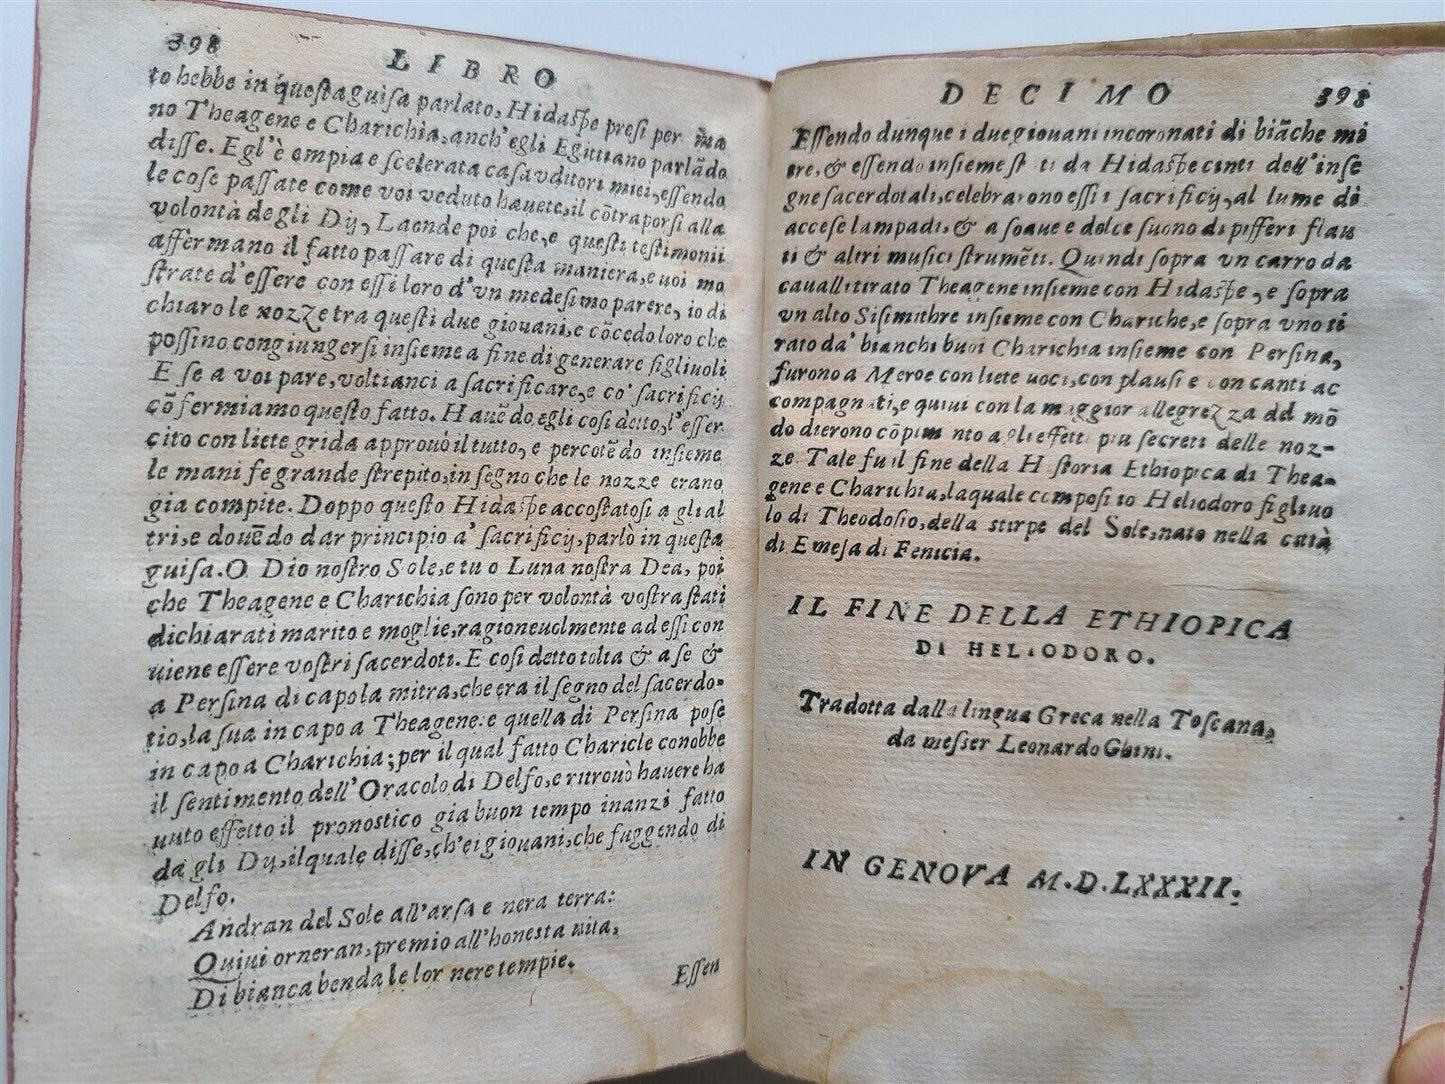 398
LIBRO
to hebbe in questa guisa parlato, Hidaspe presi per mã
no Theagene e Charichia, anch'egli Egittiano parlãdo
disse. Egl'è empia e scelerata casa uditori miei, essendo
le cose passate come voi veduto hauete, il cõtraporsi alla
volontà de gli Dy, Laonde poi che, e questi testimonii
affermano il fatto passare di questa maniera, e uoi mo
strate d'essere con essi loro d'un medesimo parere, io di
chiaro le nozze tra questi due giouani, e cõcedo loro che
possino congiungersi insieme a fine di generare figliuoli
E se a voi pare, voltianci a sacrificare, e co' sacrificij
cõfermiamo questo fatto. Hauẽdo egli cosi detto, l'esser
cito con liete grida approuò il tutto, e percotẽdo insieme
le mani fe grande strepito, in segno che le nozze erano
gia compite. Doppo questo Hidaspe accostatosi a gli al
tri, e douẽdo dar principio a' sacrificij, parlò in questa
guisa. O Dio nostro Sole, e tu o Luna nostra Dea, poi
che Theagene e Charichia sono per volontà vostra stati
dichiarati marito e moglie, ragioneuolmente ad essi con
uiene essere vostri sacerdoti. E cosi detto tolta & a se &
a Persina di capo la mitra, che era il segno del sacerdo-
tio, la sua in capo a Theagene: e quella di Persina pose
in capo a Charichia; per il qual fatto Charicle conobbe
il sentimento dell'Oracolo di Delfo, e ritrouò hauere ha
uuto effetto il pronostico gia buon tempo inanzi fatto
da gli Dy, il quale disse, ch'ei giouani, che fuggendo di
Delfo.
Andran del Sole all'arsa e nera terra:
Quiui orneran, premio all'honesta uita,
Di bianca benda le lor nere tempie.
Essen
DECIMO
398
Essendo dunque i due giouani incoronati di biãche mi
tre, & essendo insieme stati da Hidaspe cinti dell'inse
gne sacerdotali, celebrarono essi i sacrificij, al lume di
accese lampadi, & a soaue e dolce suono di pifferi flau
ti & altri musici strumẽti. Quindi sopra vn carro da
caualli tirato Theagene insieme con Hidaspe, e sopra
vn alto Sisimithre insieme con Chariche, e sopra vno ti
rato da' bianchi buoi Charichia insieme con Persina,
furono a Meroe con liete uoci, con plausi e con canti ac
compagnati, e quiui con la maggior allegrezza dd mõ
do dierono cõpimento a gli effetti piu secreti delle noz-
ze. Tale fu il fine della Historia Ethiopica di Thea-
gene e Charichia, laquale composi io Heliodoro figliuo
lo di Theodosio, della stirpe del Sole, nato nella città
di Emesa di Fenicia.
IL FINE DELLA ETHIOPICA
DI HELIODORO.
Tradotta dalla lingua Greca nella Toscana,
da messer Leonardo Ghini.
IN GENOVA M.D.LXXXII.